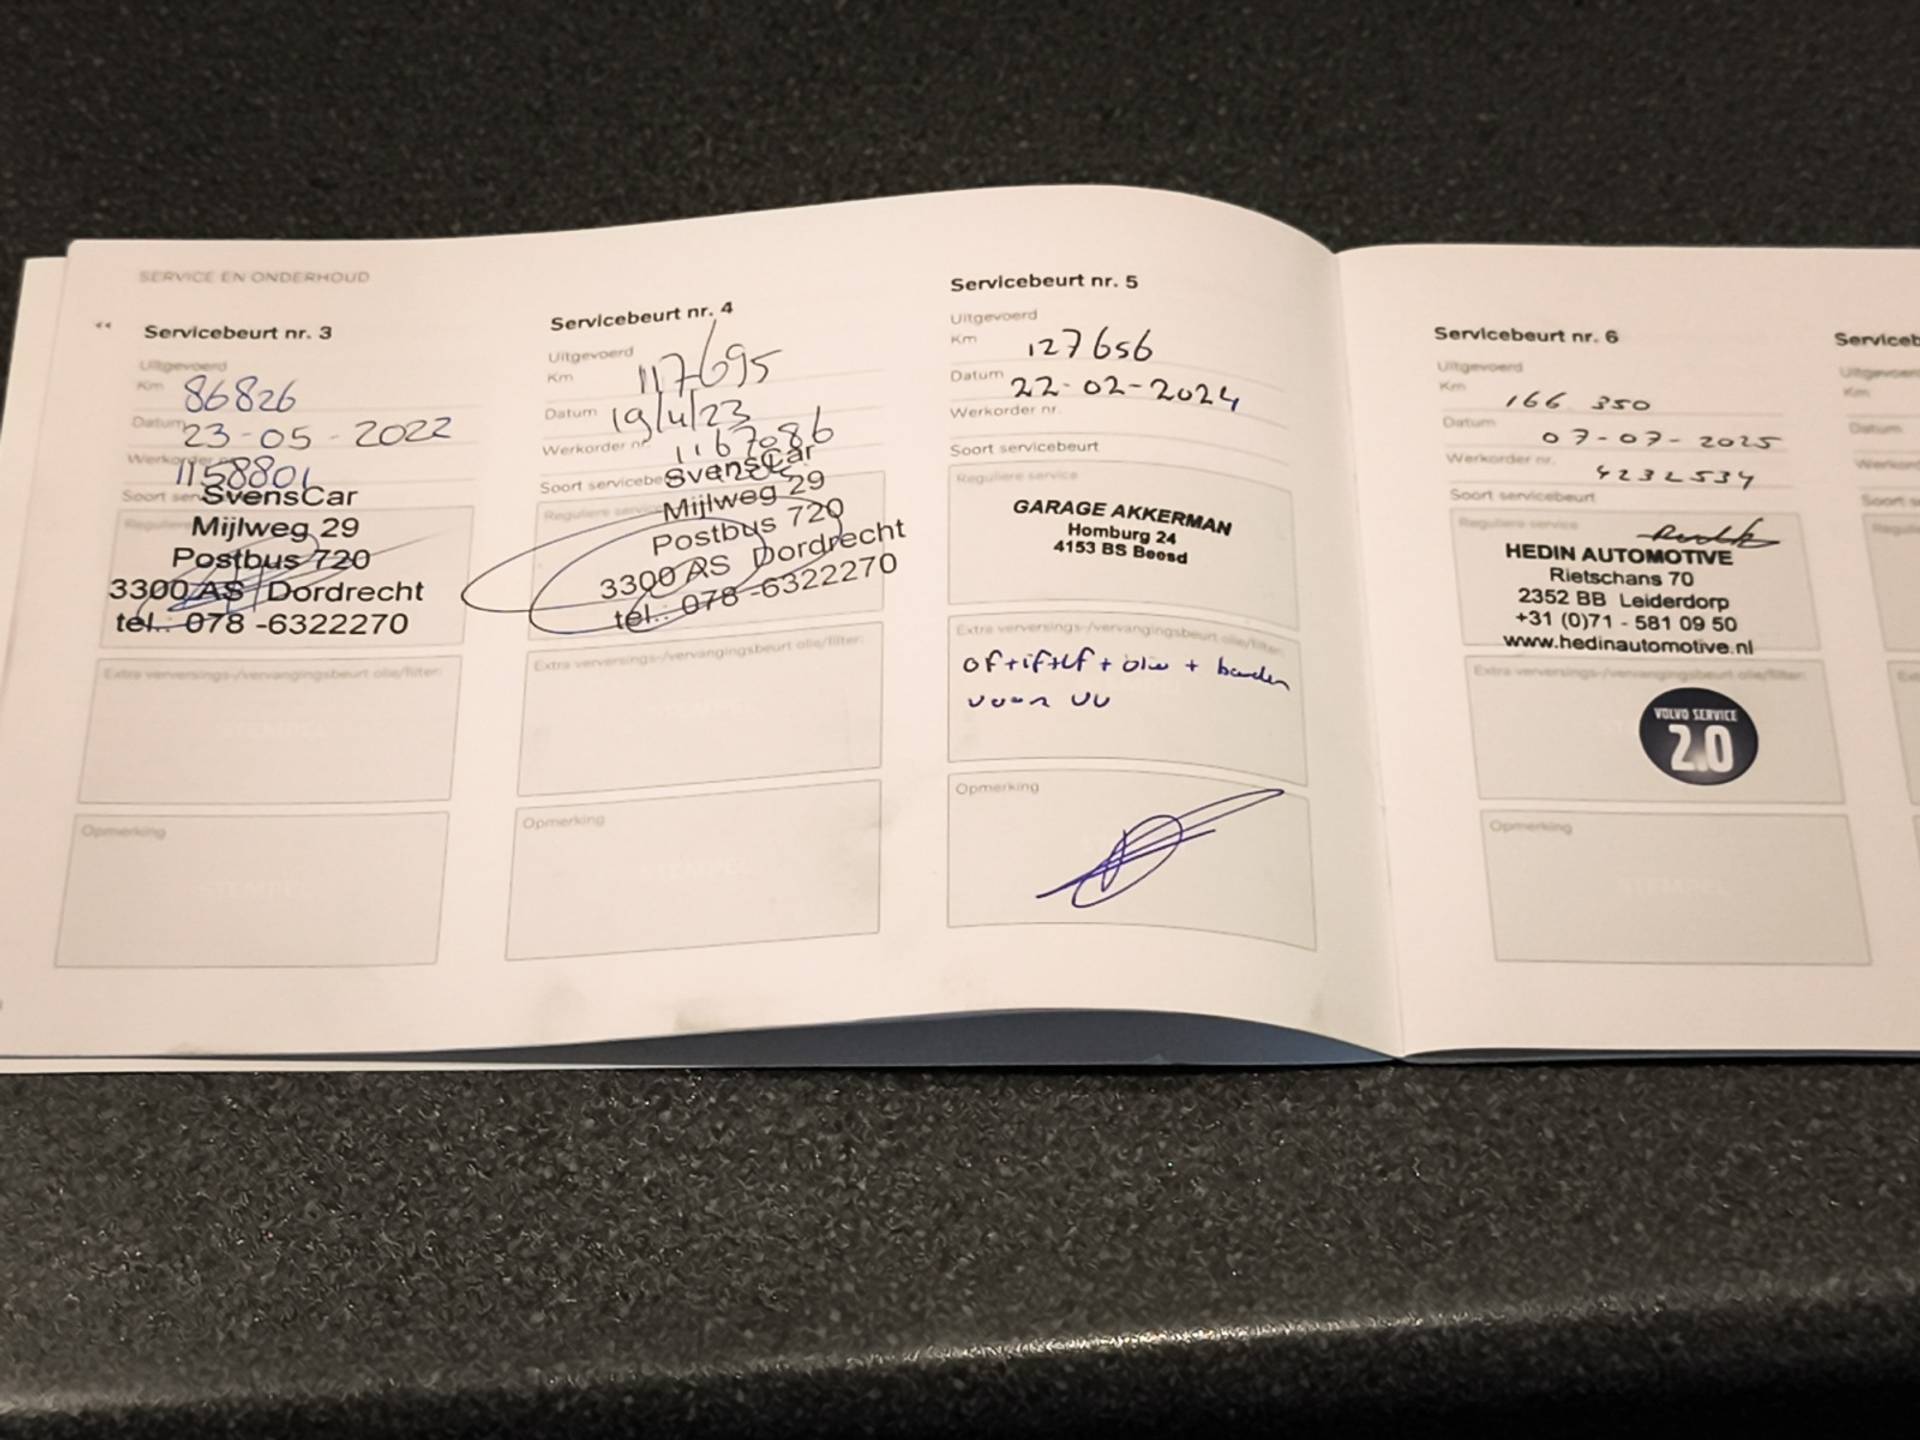 SERVICE EN ONDERHOUD
Servicebeurt nr. 3
Uitgevoerd
Km 86826
Datum 23-05-2022
1158801
SvensCar
Mijlweg 29
Postbus 720
3300 AS Dordrecht
tel.: 078 -6322270
Extra verversings-/vervangingsbeurt olie/filter:
Opmerking
STEMPEL
Servicebeurt nr. 4
Uitgevoerd
Km 117695
Datum 19/4/23
Werkorder nr. 1167086
Soort servicebe
SvensCar
Mijlweg 29
Postbus 720
3300 AS Dordrecht
tel.: 078 -6322270
Extra verversings-/vervangingsbeurt olie/filter:
STEMPEL
Opmerking
STEMPEL
Servicebeurt nr. 5
Uitgevoerd
Km 127656
Datum 22-02-2024
Werkorder nr.
Soort servicebeurt
Reguliere service
GARAGE AKKERMAN
Homburg 24
4153 BS Beesd
Extra verversings-/vervangingsbeurt olie/filter:
of+if+lf + olie + banden
voor vv
Opmerking
Servicebeurt nr. 6
Uitgevoerd
Km 166 350
Datum 07-07-2025
Werkorder nr. 4232534
Soort servicebeurt
Reguliere service
HEDIN AUTOMOTIVE
Rietschans 70
2352 BB Leiderdorp
+31 (0)71 - 581 09 50
www.hedinautomotive.nl
Extra verversings-/vervangingsbeurt olie/filter:
VOLVO SERVICE
2.0
Opmerking
STEMPEL
Serviceb
Uitgevoerd
Km
Datum